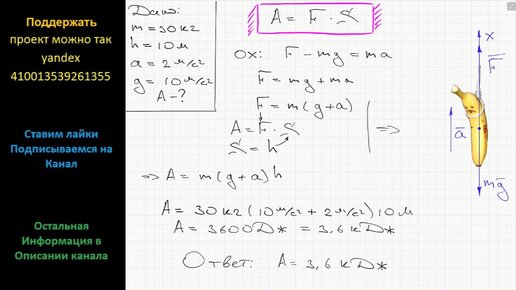 Поддержать
проект можно так
yandex
410013539261355
Ставим лайки
Подписываемся на
Канал
Остальная
Информация в
Описании канала
Дано:
m = 30 кг
h = 10 м
a = 2 м/с²
g = 10 м/с²
A - ?
A = F · S
ox: F - mg = ma
F = mg + ma
F = m(g+a)
A = F · S
S = h
=>
=> A = m(g+a)h
A = 30 кг(10 м/с² + 2 м/с²)10 м
A = 3600 Дж = 3,6 кДж
Ответ: A = 3,6 кДж
x
F
a
mg